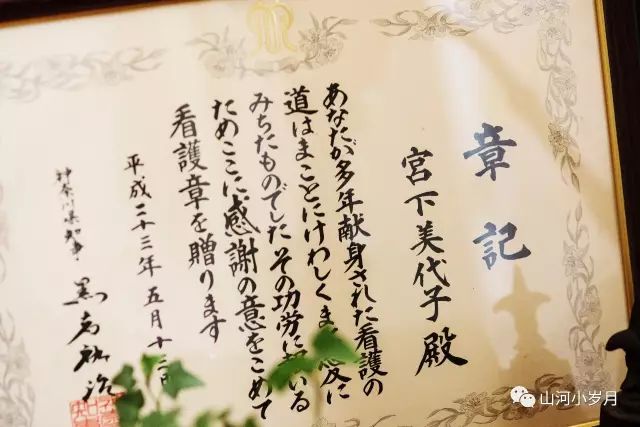 章記
宮下美代子殿
あなたが多年献身された看護の
道はまことにけわしくまた慈友に
みちたものでしたその功労に報いる
ためここに感謝の意をこめて
看護章を贈ります
平成二十三年五月十二日
神奈川県知事 黒岩祐治
山河小岁月